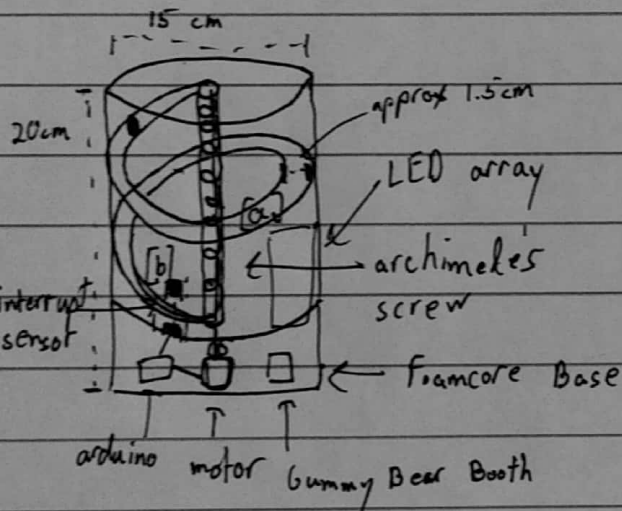 15 cm
20cm
approx 1.5cm
LED array
[a]
[b]
archimedes
screw
interrupt
sensor
Foamcore Base
arduino
motor
Gummy Bear Booth